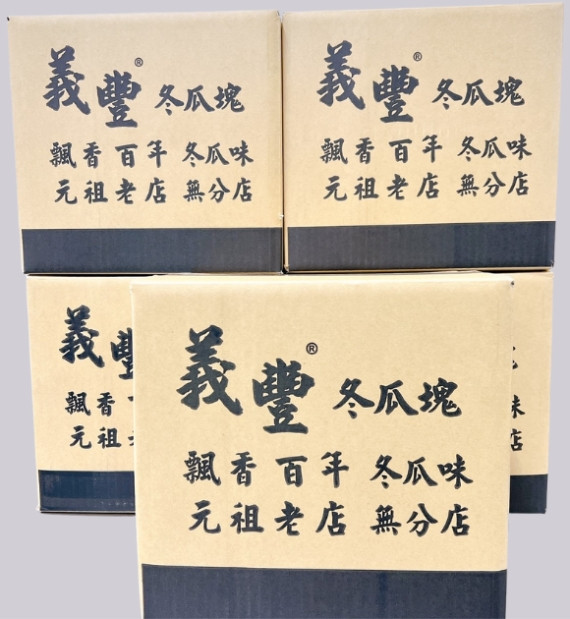 義豐® 冬瓜塊
飄香百年 冬瓜味
元祖老店 無分店
義豐® 冬瓜塊
飄香百年 冬瓜味
元祖老店 無分店
義豐
飄香
元祖
味
店
義豐® 冬瓜塊
飄香百年 冬瓜味
元祖老店 無分店